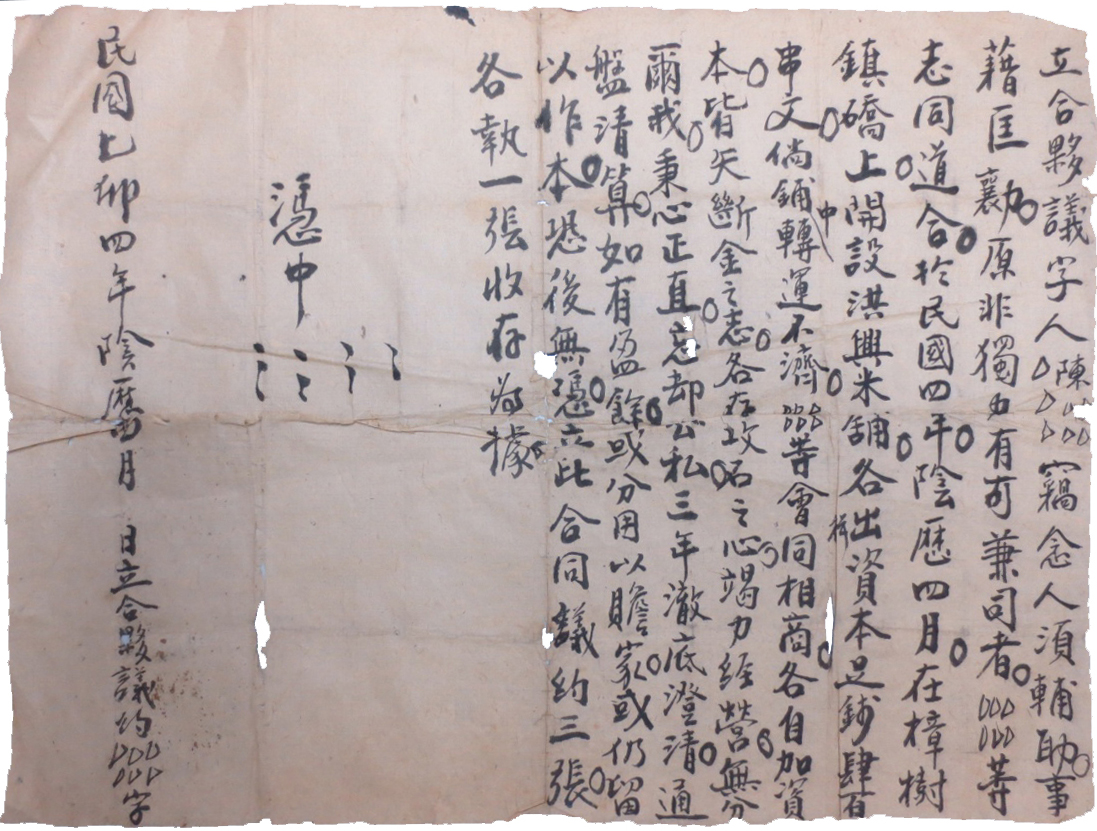 立合夥議字人陳窃念人須輔助事
藉匡襄勷原非獨力有可兼司者等
志同道合於民國四年陰歷四月在樟樹
鎮礄上開設洪興米舖各出資本足錢肆百
串文倘鋪中轉運不濟等會同相商各自加資
本皆矢斷金之志各存攻石之心竭力經營無分
爾我秉心正直忘却公私三年澈底澄清通
盤清算如有盈餘或分用以贍家或仍留
以作本恐後無憑立此合同議約三張
各執一張收存為據
憑中
民國乙卯四年陰歷四月 日立合夥議約字